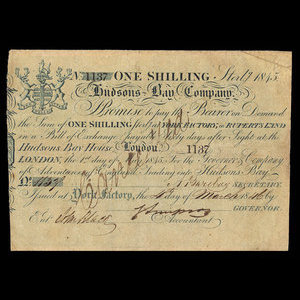 1137 ONE SHILLING Sterlg 1845
Hudsons Bay Company.
I Promise to pay the Bearer on Demand
the Sum of ONE SHILLING Sterlg at YORK FACTORY, in RUPERTS LAND
in a Bill of Exchange payable Sixty days after Sight at the
Hudsons Bay House London 1137
LONDON, the 1st day of 1845 For the Governor & Company
of Adventurers of England Trading into Hudsons Bay
No. 1137 SECRETARY
Issued at York Factory, the day of March GOVERNOR
Ent. Accountant